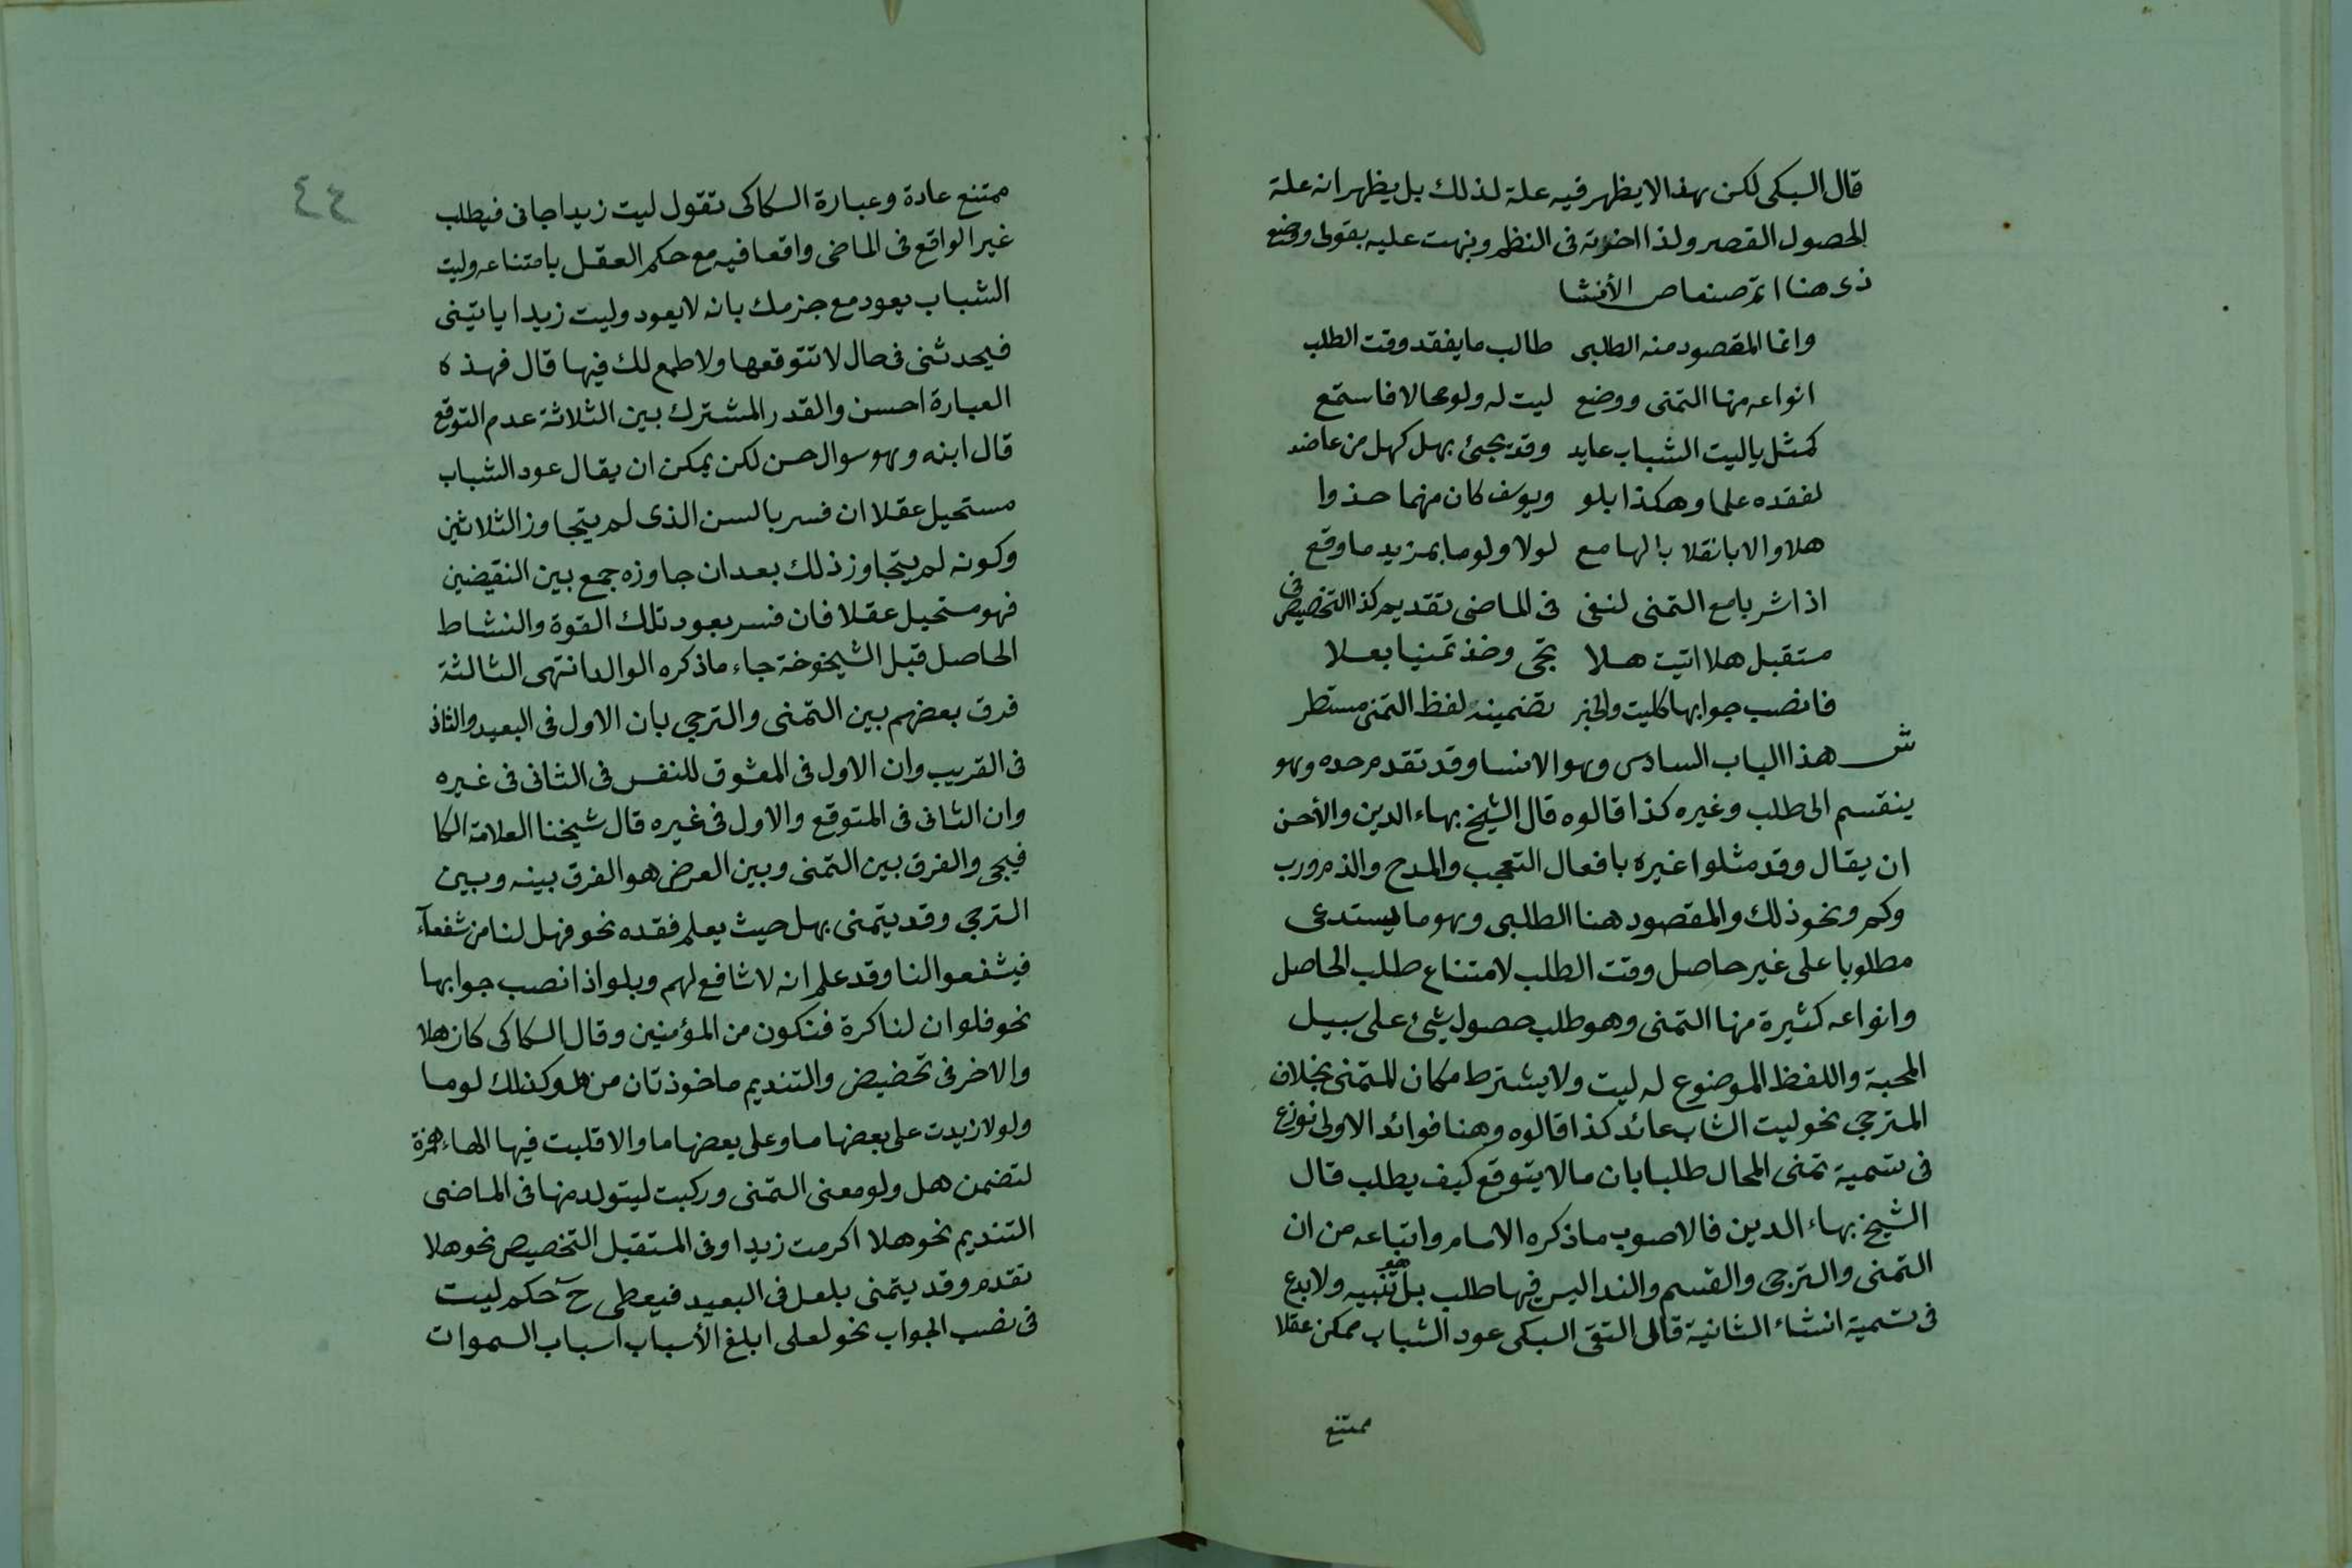 قال السبكى لكن هذا لا يظهر فيه علة لذلك بل يظهر انه علة
لحصول القصر ولذا اخرته فى النظم ونبهت عليه بقولى ووضع
ذى هنا اتم صنعا ص الأنشا
وانما المقصود منه الطلبى طالب ما يفقد وقت الطلب
انواعه منها التمنى ووضع ليت له ولو محالا فاستمع
كمثل ياليت الشباب عايد وقد يجئ بهل كهل من عاضد
لفقده علما وهكذا بلو ويوسف كان منهما حذوا
هلا والا بانقلاب الها مع لولا ولوما بمزيد ما وقع
اذ اشربا مع التمنى لنفى فى الماضى تقديم كذا التخصيص فى
مستقبل هلا اتيت هلا تجى وخذ تمنيا بعلا
فانصب جوابها كليت والخبر تضمينه لفظ التمنى مستطر
ش هذا الباب السادس وهو الانسا وقد تقدم حده وهو
ينقسم الى طلب وغيره كذا قالوه قال الشيخ بهاء الدين والأحسن
ان يقال وقد مثلوا غيره بافعال التعجب والمدح والذم ورب
وكم ونحو ذلك والمقصود هنا الطلبى وهو ما يستدعى
مطلوبا على غير حاصل وقت الطلب لامتناع طلب الحاصل
وانواعه كثيرة منها التمنى وهو طلب حصول شئ على سبيل
المحبة واللفظ الموضوع له ليت ولا يشترط مكان للمتمنى بخلاف
المترجى نحو ليت الشاب عائد كذا قالوه وهنا فوائد الاولى نوزع
فى تسمية تمنى المحال طلبا بان مالا يتوقع كيف يطلب قال
الشيخ بهاء الدين فالاصوب ما ذكره الامام واتباعه من ان
التمنى والترجى والقسم والندا ليس فيها طلب بل هو تنبيه ولا بدع
فى تسمية انشاء الثانية قال التقى السبكى عود الشباب ممكن عقلا
ممتنع
٤٤
ممتنع عادة وعبارة السكاكى تقول ليت زيدا جانى فيطلب
غير الواقع فى الماضى واقعا فيه مع حكم العقل بامتناعه وليت
الشباب يعود مع جزمك بانه لا يعود وليت زيدا ياتينى
فيحدثنى فى حال لا تتوقعها ولا طمع لك فيها قال فهذه
العبارة احسن والقدر المشترك بين الثلاثة عدم التوقع
قال ابنه وهو سوال حسن لكن يمكن ان يقال عود الشباب
مستحيل عقلا ان فسر بالسن الذى لم يتجاوز الثلاثين
وكونه لم يتجاوز ذلك بعد ان جاوزه جمع بين النقيضين
فهو مستحيل عقلا فان فسر بعود تلك القوة والنشاط
الحاصل قبل الشيخوخة جاء ما ذكره الوالد انتهى الثالثة
فرق بعضهم بين التمنى والترجى بان الاول فى البعيد والثانى
فى القريب وان الاول فى المعشوق للنفس فى الثانى فى غيره
وان الثانى فى المتوقع والاول فى غيره قال شيخنا العلامة الكا
فيجى والفرق بين التمنى وبين العرض هو الفرق بينه وبين
الترجى وقد يتمنى بهل حيث يعلم فقده نحو فهل لنا من شفعآء
فيشفعوا لنا وقد علم انه لا شافع لهم وبلو اذا نصب جوابها
نحو فلو ان لنا كرة فنكون من المؤمنين وقال السكاكى كان هلا
والاخر فى تحضيض والتنديم ماخوذتان من هل وكذلك لوما
ولولا زيدت على بعضها ما وعلى بعضها ما والا قلبت فيها الهاء همزة
لتضمن هل ولو معنى التمنى وركبت ليتولد منها فى الماضى
التنديم نحو هلا اكرمت زيدا وفى المستقبل التخصيص نحو هلا
تقدم وقد يتمنى بلعل فى البعيد فيعطى ح حكم ليت
فى نصب الجواب نحو لعلى ابلغ الأسباب اسباب السموات